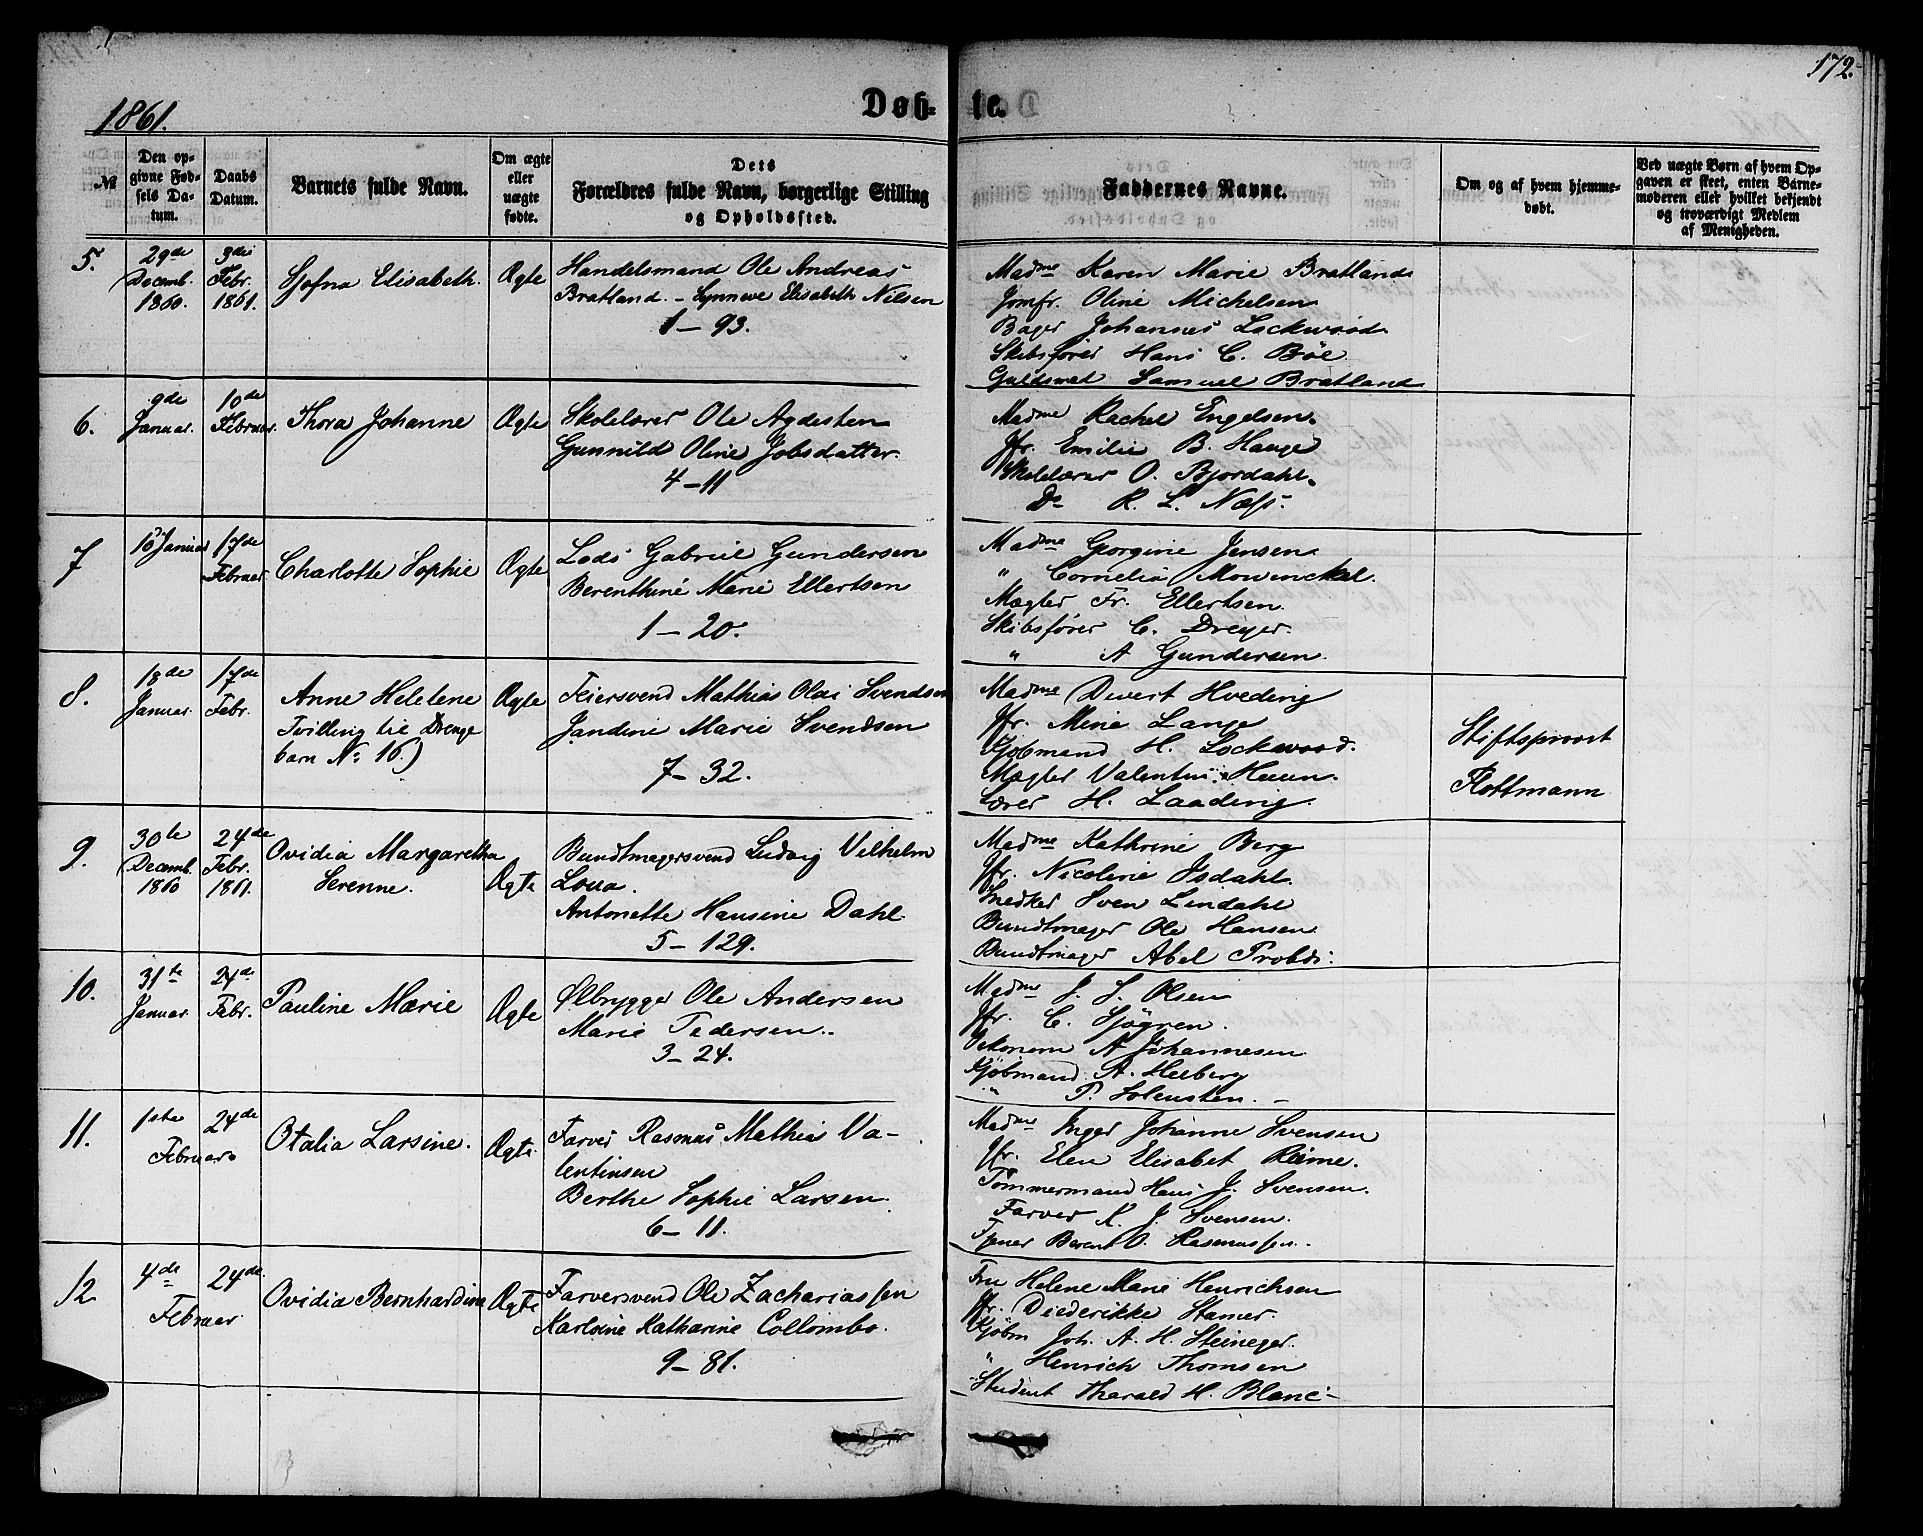 172.
1861.
Døb-
te.
№
Den op-
givne Fød-
sels Da-
tum.
Daabs
Datum.
Barnets fulde Navn.
Om ægte
eller
uægte
fødte.
Dets
Forældres fulde Navn, borgerlige Stilling
og Opholdssted.
Faddernes Navne.
Om og af hvem hjemme-
døbt.
Ved uægte Børn af hvem Op-
gaven er skeet, enten Barne-
moderen eller hvilket bekjendt
og troværdigt Medlem
af Menigheden.
5.
29de
Decemb.
1860.
3die
Febr.
1861.
Sjofna Elisabeth.
Ægte
Handelsmand Ole Andreas
Bratland. - Synneve Elisabeth Nilsen
1-93.
Madme Karen Marie Bratland
Jomfr. Oline Michelsen
Bager Johannes Lockwood
Skibsfører Hans C. Böe
Guldsmed Samuel Bratland
6.
9de
Januar.
10de
Februar.
Thora Johanne
Ægte
Skolelærer Ole Agdesten
Gunnild Oline Jobsdatter.
4-11
Madme Rachel Engelsen.
Jfr. Emilie B. Hauge
Skolelærer O. Bjordahl.
Do R. L. Næss.
7
10 Januar
17de
Februar
Charlotte Sophie
Ægte
Lods Gabriel Gundersen
Berenthine Marie Ellertsen
1-20.
Madme Georgine Jensen
" Cornelia Mowinckel.
Mægler Fr. Ellertsen.
Skibsfører C. Dreyer.
" A Gundersen.
8.
18de
Januar.
17de
Febr.
Anne Helelene
Tvilling til Drenge
barn No 16.)
Ægte
Feiersvend Mathias Olai Svendsen
Jandine Marie Svendsen
7-32.
Madme Divert Hveding
Jfr. Mine Lange
Kjøbmand H. Lockwood.
Mægler Valentin Huun.
Lærer H. Laading.
Stiftsprovst
Flottmann
9.
30te
Decemb.
1860
24de
Febr.
1861.
Ovidia Margaretha
Serenne.
Ægte
Bundtmagersvend Ludvig Vilhelm
Loua.
Antonette Hansine Dahl
5-129.
Madme Kathrine Berg
Jfr. Nicoline Isdahl.
Snedker Sven Lindahl
Bundtmager Ole Hansen
Bundtmager Abel
10.
31te
Januar.
24de
Febr.
Pauline Marie
Ægte
Ølbrygger Ole Andersen
Marie Pedersen.
3-24.
Madme J. J. Olsen
Jfr. C. Sjøgren.
Oekonom A Johannesen
Kjøbmand A. Heiberg
" P. Solensten. -
11.
1ste
Februar
24de
Otalia Larsine.
Ægte.
Farver Rasmus Mathias Va-
lentinsen
Berthe Sophie Larsen.
6-11.
Madme Inger Johanne Svensen
Jfr. Elen Elisabet Reime.
Tømmermand Hans J. Svensen.
Farver K. J. Svensen.
Tjener Berent O. Rasmussen.
12
4de
Februar
24de.
Ovidia Bernhardine
Ægte
Farversvend Ole Zachariassen
Karoline Katharine Collombo.
9-81.
Fru Helene Marie Henrichsen
Jfr. Diederikke Stamer.
Kjøbm Joh. A. H. Steineger.
" Henrich Thomsen
Student Tharald H. Blanc -